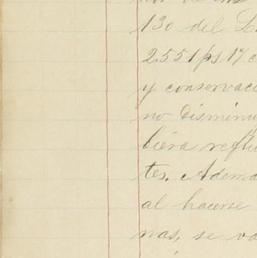 130 del
2551 ps. 17 c
y conservaci
no disminu
biera refle
tes. Adema
al hacerse
nas, se va